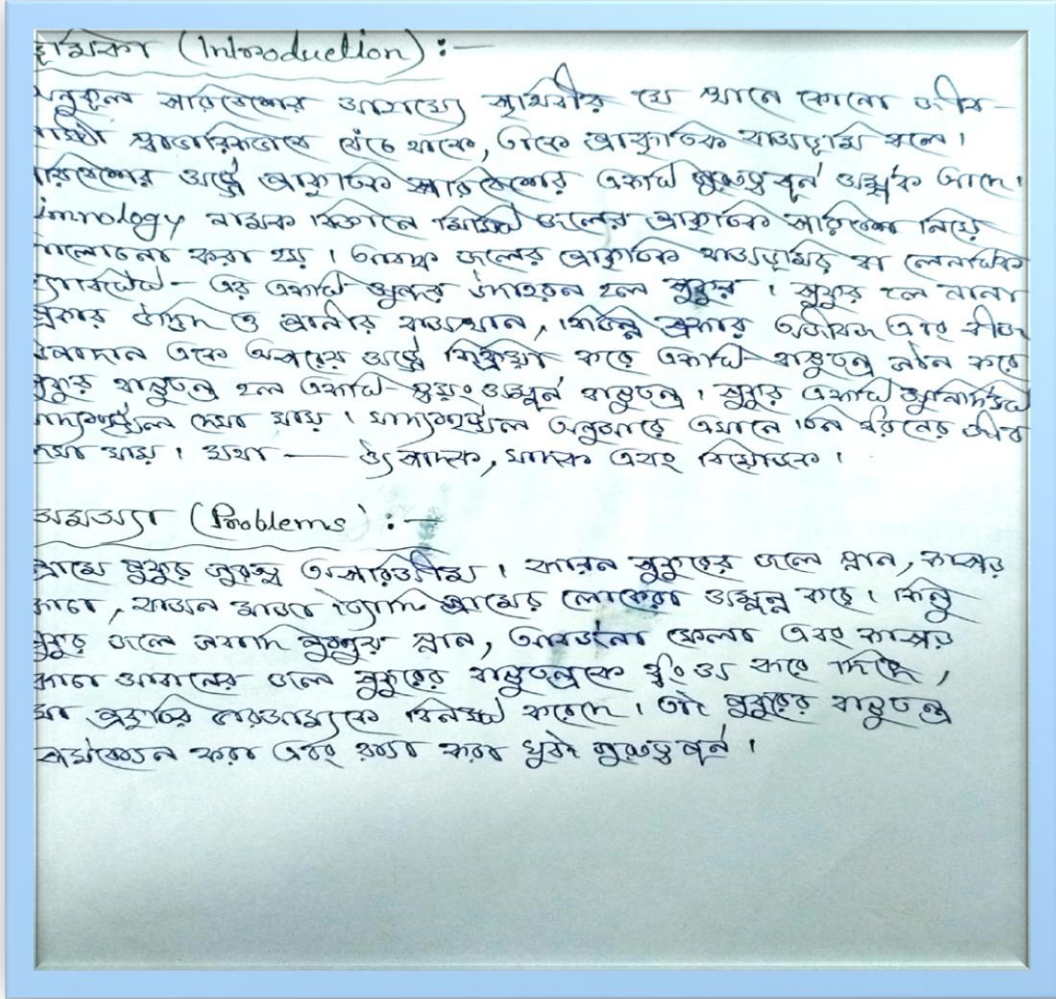 ভূমিকা (Introduction) :—
অনুকূল পরিবেশের সাহায্যে পৃথিবীর যে স্থানে কোনো জীব-
স্বাভাবিকভাবে বেঁচে থাকে, তাকে প্রাকৃতিক বাসভূমি বলে।
পরিবেশের সঙ্গে প্রাকৃতিক পরিবেশের একটি গুরুত্বপূর্ণ সম্পর্ক আছে।
imnology নামক বিজ্ঞানে মিষ্টি জলের প্রাকৃতিক পরিবেশ নিয়ে
আলোচনা করা হয়। আবদ্ধ জলের প্রাকৃতিক বাসভূমির বা লেনটিক
হ্যাবিটেট- এর একটি সুন্দর উদাহরন হল পুকুর। পুকুর হল নানা
প্রকার উদ্ভিদ ও প্রানীর বাসস্থান, বিভিন্ন প্রকার অজীবজ এবং জীবজ
উপাদান একে অপরের সঙ্গে বিক্রিয়া করে একটি বাস্তুতন্ত্র গঠন করে
পুকুর বাস্তুতন্ত্র হল একটি স্বয়ংসম্পূর্ন বাস্তুতন্ত্র। পুকুরে একটি সুনির্দিষ্ট
খাদ্যশৃঙ্খল দেখা যায়। খাদ্যশৃঙ্খল অনুসারে এখানে তিন ধরনের জীব
দেখা যায়। যথা — উৎপাদক, খাদক এবং বিয়োজক।
সমস্যা (Problems) :—
গ্রামে পুকুর গুরুত্ব অপরিসীম। কারন পুকুরের জলে স্নান, কাপড়
কাচা, বাসন মাজা ইত্যাদি গ্রামের লোকেরা সম্পন্ন করে। কিন্তু
পুকুর জলে গবাদি পশুর স্নান, আবর্জনা ফেলা এবং কাপড়
কাচা সাবানের জলে পুকুরের বাস্তুতন্ত্রকে ধ্বংস করে দিচ্ছে,
যা প্রকৃতির ভারসাম্যকে বিনষ্ট করেছে। তাই পুকুরের বাস্তুতন্ত্র
পর্যবেক্ষন করা এবং রক্ষা করা খুবই গুরুত্বপূর্ন।